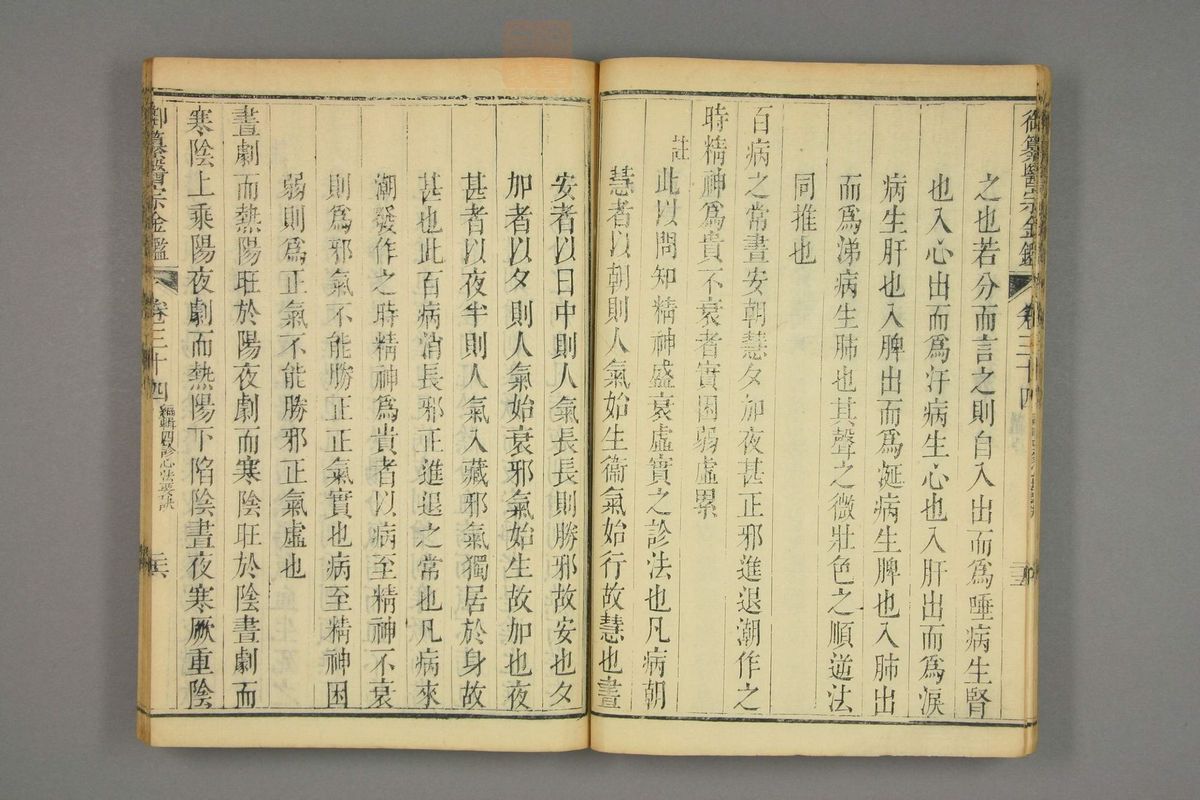 御纂醫宗金鑑 卷三十四
之也若分而言之則自入出而為唾病生腎
也入心出而為汗病生心也入肝出而為淚
病生肝也入脾出而為涎病生脾也入肺出
而為涕病生肺也其聲之微壯色之順逆法
同推也
百病之常晝安朝慧夕加夜甚正邪進退潮作之
時精神為貴不衰者實困弱虛累
註此以問知精神盛衰虛實之診法也凡病朝
慧者以朝則人氣始生衞氣始行故慧也晝
安者以日中則人氣長長則勝邪故安也夕
加者以夕則人氣始衰邪氣始生故加也夜
甚者以夜半則人氣入藏邪氣獨居於身故
甚也此百病消長邪正進退之常也凡病來
潮發作之時精神為貴者以病至精神不衰
則為邪氣不能勝正正氣實也病至精神困
弱則為正氣不能勝邪正氣虛也
晝劇而熱陽旺於陽夜劇而寒陰旺於陰晝劇而
寒陰上乘陽夜劇而熱陽下陷陰晝夜寒厥重陰
御纂醫宗金鑑 卷三十四 編輯四診心法要訣